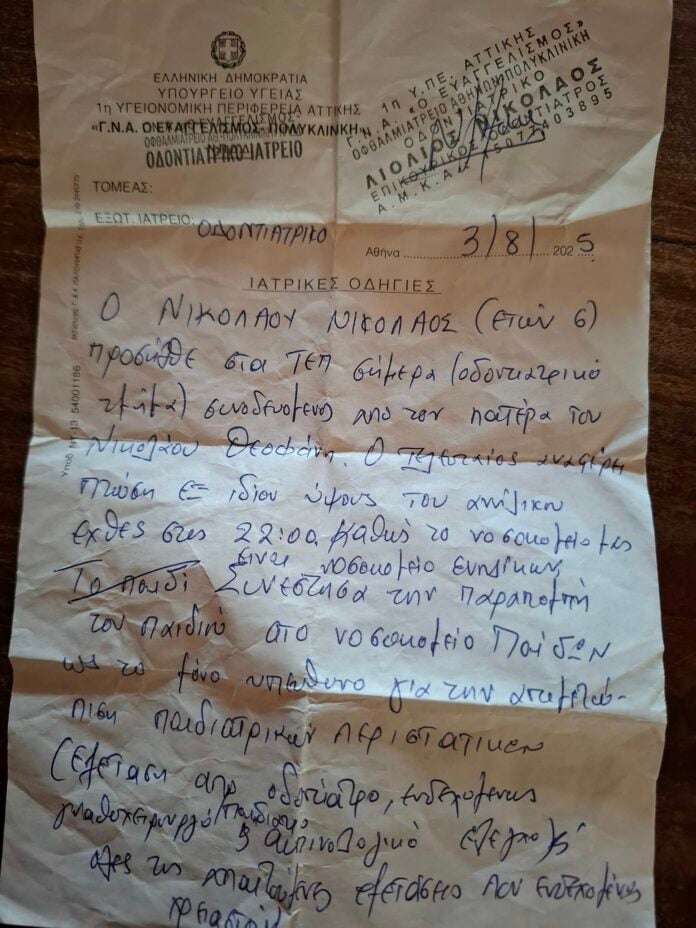 ΕΛΛΗΝΙΚΗ ΔΗΜΟΚΡΑΤΙΑ
ΥΠΟΥΡΓΕΙΟ ΥΓΕΙΑΣ
1η ΥΓΕΙΟΝΟΜΙΚΗ ΠΕΡΙΦΕΡΕΙΑ ΑΤΤΙΚΗΣ
«Γ.Ν.Α. Ο ΕΥΑΓΓΕΛΙΣΜΟΣ- ΠΟΛΥΚΛΙΝΙΚΗ»
ΟΔΟΝΤΙΑΤΡΙΚΟ ΙΑΤΡΕΙΟ
1η Υ.ΠΕ. ΑΤΤΙΚΗΣ
Γ.Ν.Α. «Ο ΕΥΑΓΓΕΛΙΣΜΟΣ»
ΟΦΘΑΛΜΙΑΤΡΕΙΟ ΑΘΗΝΩΝ ΠΟΛΥΚΛΙΝΙΚΗ
ΟΔΟΝΤΙΑΤΡΙΚΟ
ΛΙΟΛΙΟΣ ΝΙΚΟΛΑΟΣ
ΕΠΙΚΟΥΡΙΚΟΣ ΟΔΟΝΤΙΑΤΡΟΣ
Α.Μ.Κ.Α. 15072403895
ΤΟΜΕΑΣ:
ΕΞΩΤ. ΙΑΤΡΕΙΟ: ΟΔΟΝΤΙΑΤΡΙΚΟ
Αθήνα 3/8/ 2025
ΙΑΤΡΙΚΕΣ ΟΔΗΓΙΕΣ
Ο ΝΙΚΟΛΑΟΥ ΝΙΚΟΛΑΟΣ (ετών 6)
προσήλθε στα ΤΕΠ σήμερα (οδοντιατρικό
τμήμα) συνοδευόμενος από τον πατέρα του
Νικολάου Θεοφάνη. Ο τελευταίος αναφέρει
πτώση εξ ιδίου ύψους του ανηλίκου
εχθές στις 22:00. Καθώς το νοσοκομείο μας
είναι νοσοκομείο ενηλίκων
Το παιδί Συνέστησα την παραπομπή
του παιδιού στο νοσοκομείο Παίδων
ως το μόνο υπεύθυνο για την αντιμετώ-
πιση παιδιατρικών περιστατικών
(εξέταση από οδοντίατρο, ενδεχομένως
γναθοχειρουργό, παιδίατρο
ακτινολογικό έλεγχο &
όλες τις απαιτούμενες εξετάσεις που ενδεχομένως
Υποδ. ΝΤ-13 54001186